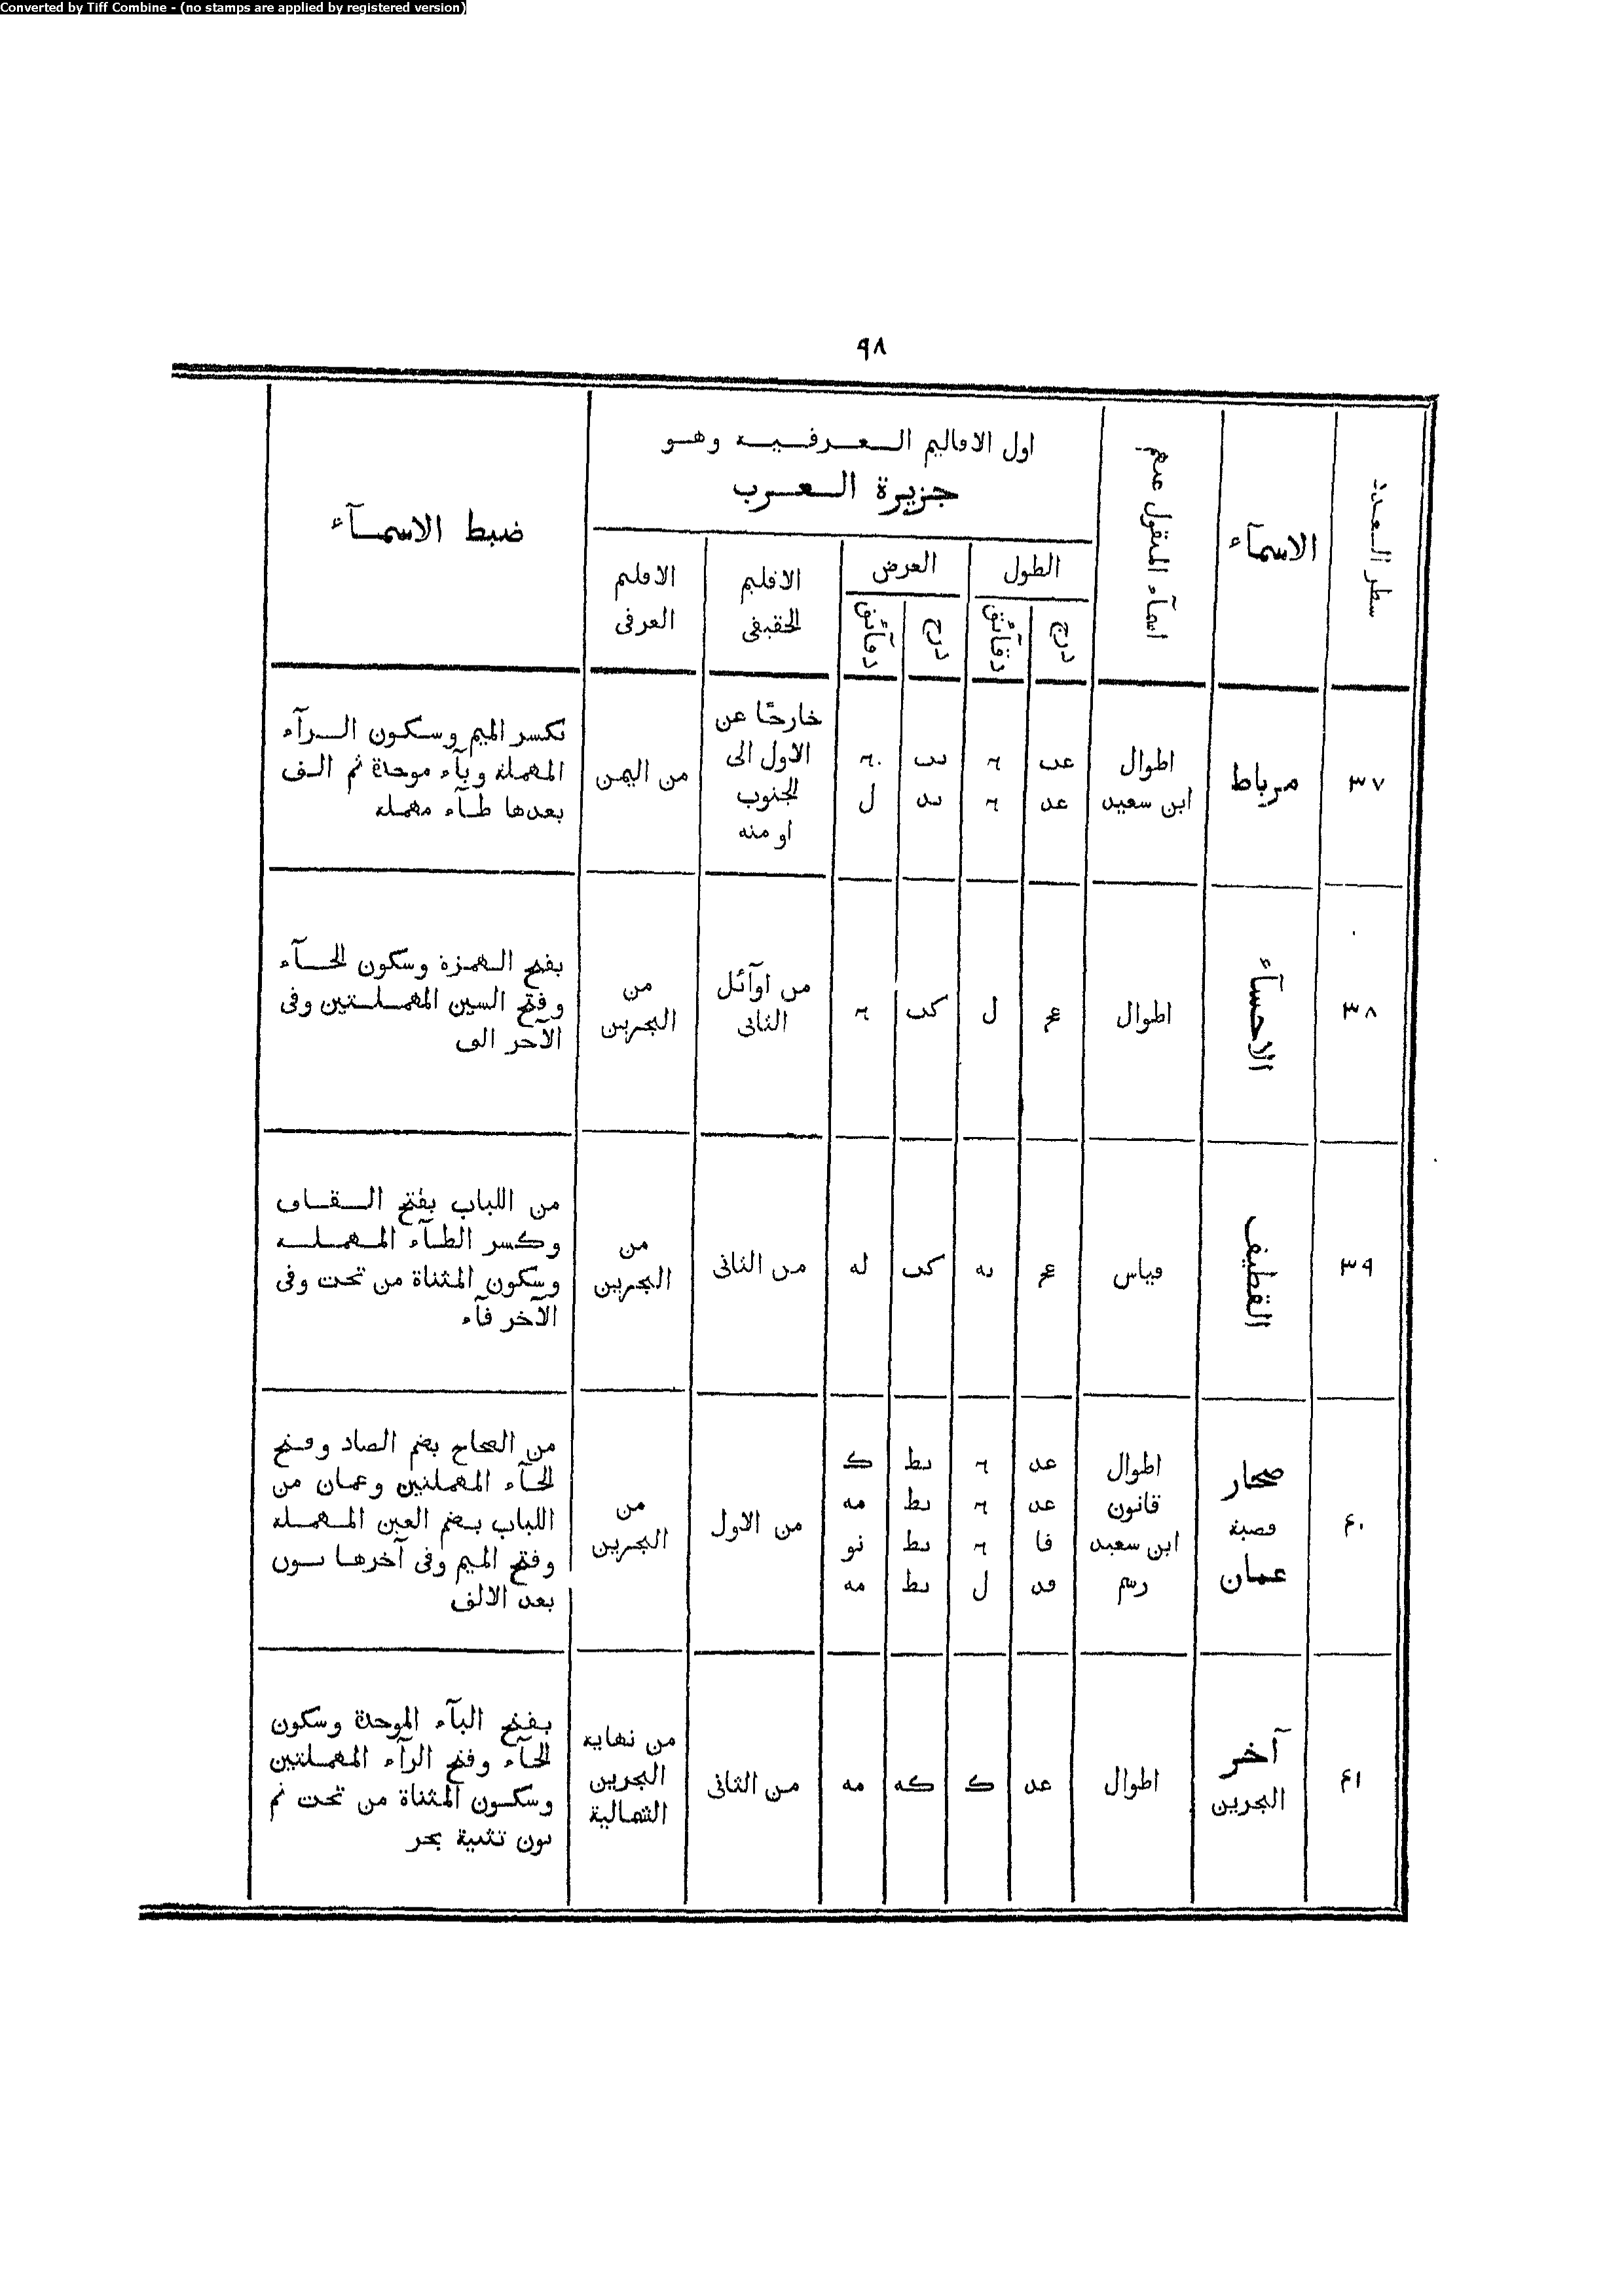 Converted by Tiff Combine - (no stamps are applied by registered version)
٩٨
سطر العدد
الاسمآء
اسمآء المنقول عنهم
اول الاقاليم العرفيه وهو
جزيرة العرب
الطول
درج
دقآئق
العرض
درج
دقآئق
الاقليم
الحقيقى
الاقليم
العرفى
ضبط الاسمآء
٣٧
مرباط
اطوال
ابن سعيد
عب
عد
ىب
ىد
ل
خارجًا عن
الاول الى
الجنوب
او منه
من اليمن
بكسر الميم وسكون الرآء
المهملة وبآء موحدة ثم الف
بعدها طآء مهمله
٣٨
الاحسآء
اطوال
عج
ل
كب
من اوآئل
الثانى
من
البحرين
بفتح الهمزة وسكون الحآء
وفتح السين المهملتين وفى
الآخر الف
٣٩
القطيف
قياس
عج
ىه
كب
له
من الثانى
من
البحرين
من اللباب بفتح القاف
وكسر الطآء المهمله
وسكون المثناة من تحت وفى
الآخر فآء
٤٠
صحار
قصبة
عمان
اطوال
قانون
ابن سعيد
رسم
عد
عد
فا
فد
ل
ىط
ىط
ىط
ىط
ك
مه
نو
مه
من الاول
من
البحرين
من الصحاح بضم الصاد وفتح
الحآء المهملتين وعمان من
اللباب بضم العين المهمله
وفتح الميم وفى آخرها نون
بعد الالف
٤١
آخر
البحرين
اطوال
عد
ك
كه
مه
من الثانى
من نهايه
البحرين
الشمالية
بفتح البآء الموحدة وسكون
الحآء وفتح الرآء المهملتين
وسكون المثناة من تحت ثم
نون تثنية بحر